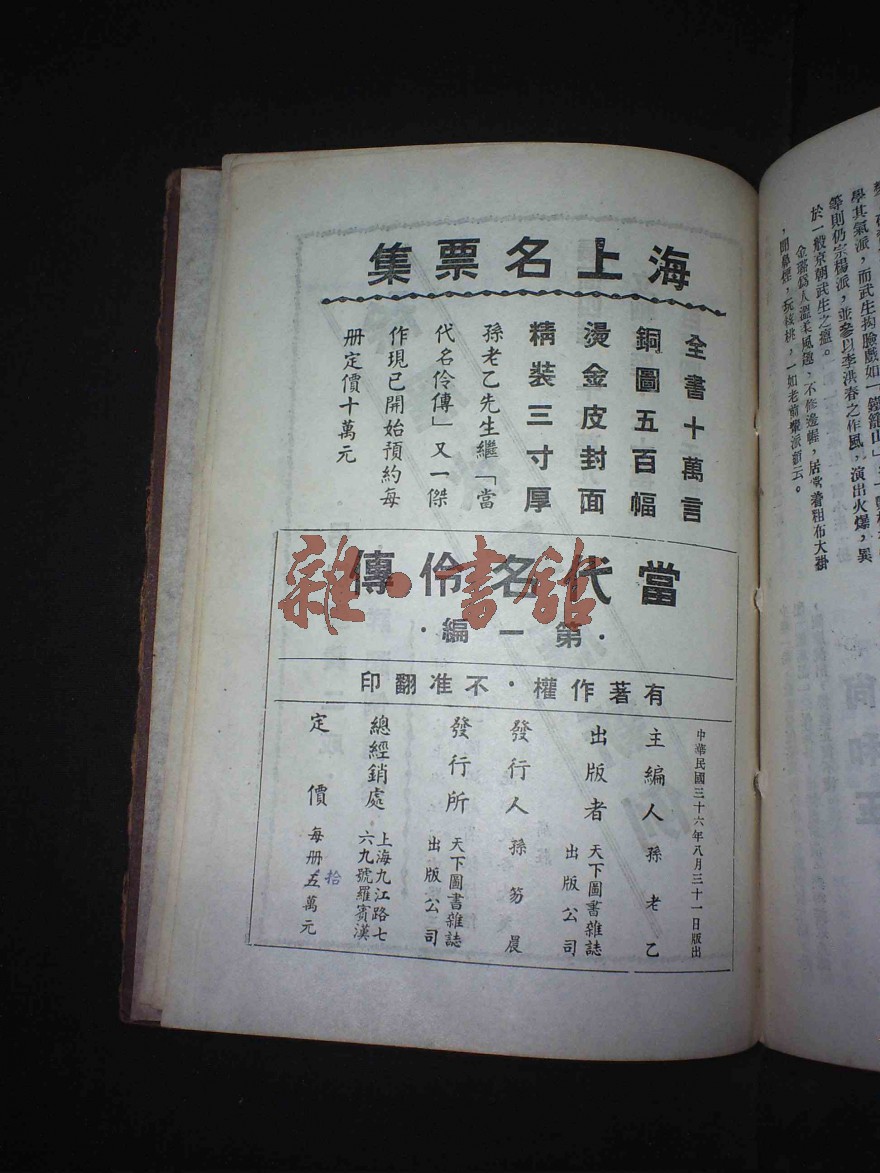 學其氣派，而武生抅臉戲如「鐵籠山」
等則仍宗楊派，並參以李洪春之作風，演出火爆，異
於一般京朝武生之瘟。
金滔爲人溫柔風趣，不修邊幅，居常着粗布大褂
，聞鼻煙，玩核桃，一如老前輩派頭云。
海上名票集
全書十萬言
銅圖五百幅
燙金皮封面
精裝三寸厚
孫老乙先生繼「當
代名伶傳」又一傑
作現已開始預約每
册定價十萬元
當代名伶傳
·第一編·
有著作權·不准翻印
中華民國三十六年八月三十一日版出
主編人 孫老乙
出版者 天下圖書雜誌出版公司
發行人 孫笏晨
發行所 天下圖書雜誌出版公司
總經銷處 上海九江路七六九號羅賓漢
定價 每册五萬元
拾
雜·書館